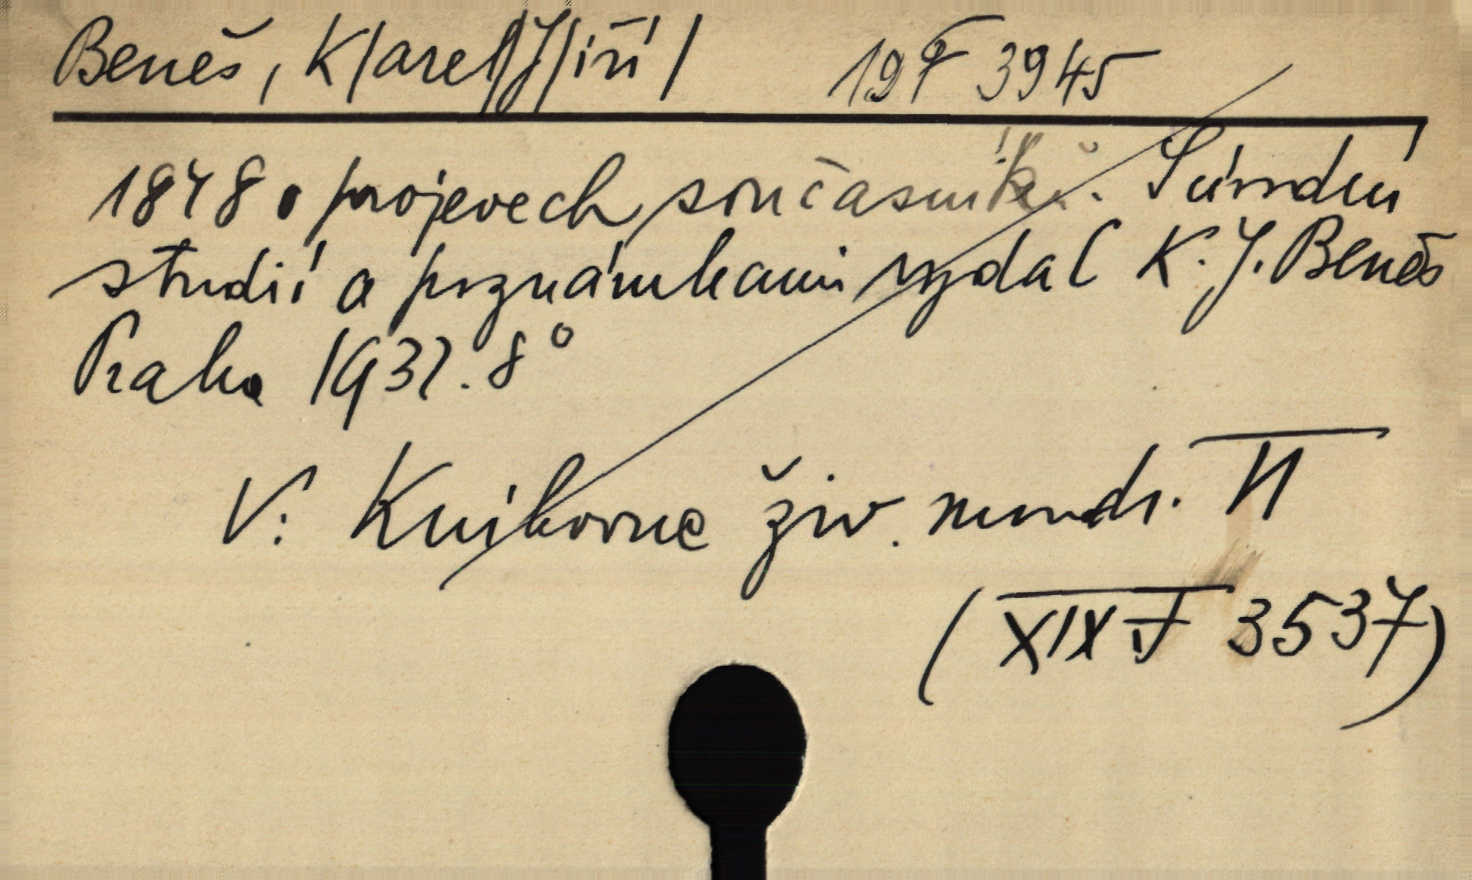 Beneš, K/arel/J/iří/ 19 F 3945
1848 v projevech současníků. S úvodní
studií a poznámkami vydal K. J. Beneš
Praha 1932. 8°
V: Knihovna živ. moudr. II
(XIX F 3537)